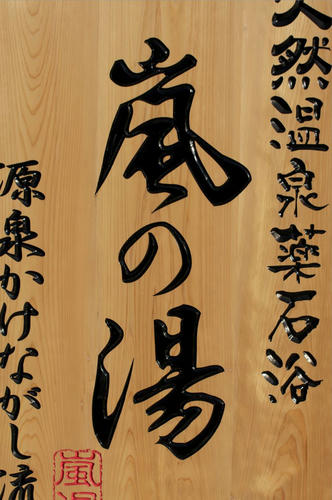 天然温泉薬石浴
嵐の湯
源泉かけながし流
嵐湯